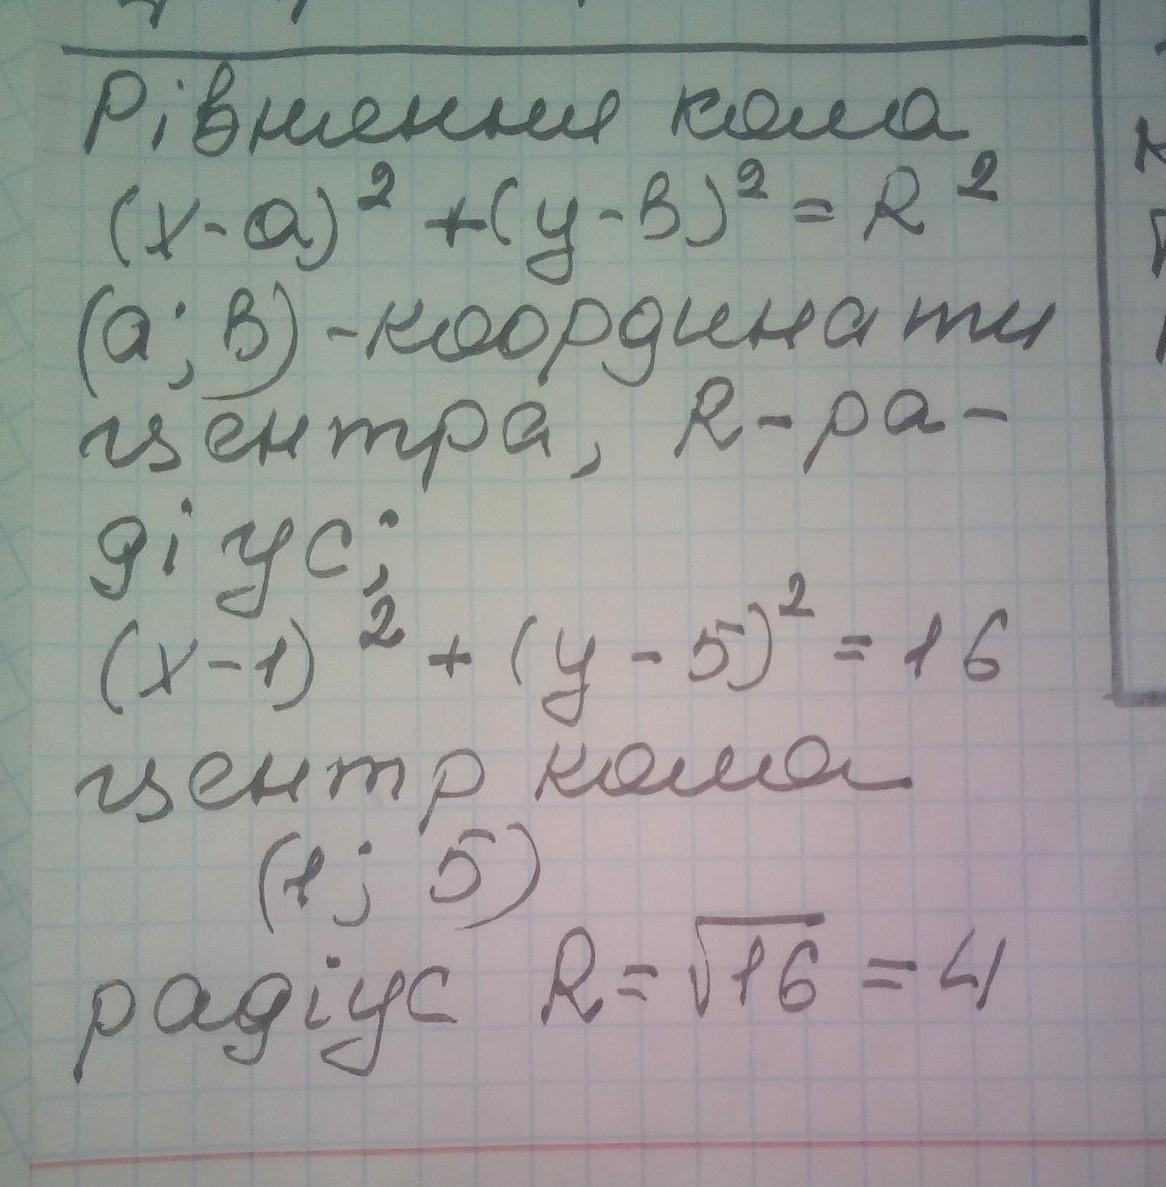 Рівняння кола
(x-a)² + (y-в)² = R²
(a; в) - координати
центра, R - ра-
діус;
(x-1)² + (y-5)² = 16
центр кола
(1; 5)
радіус R = √16 = 4